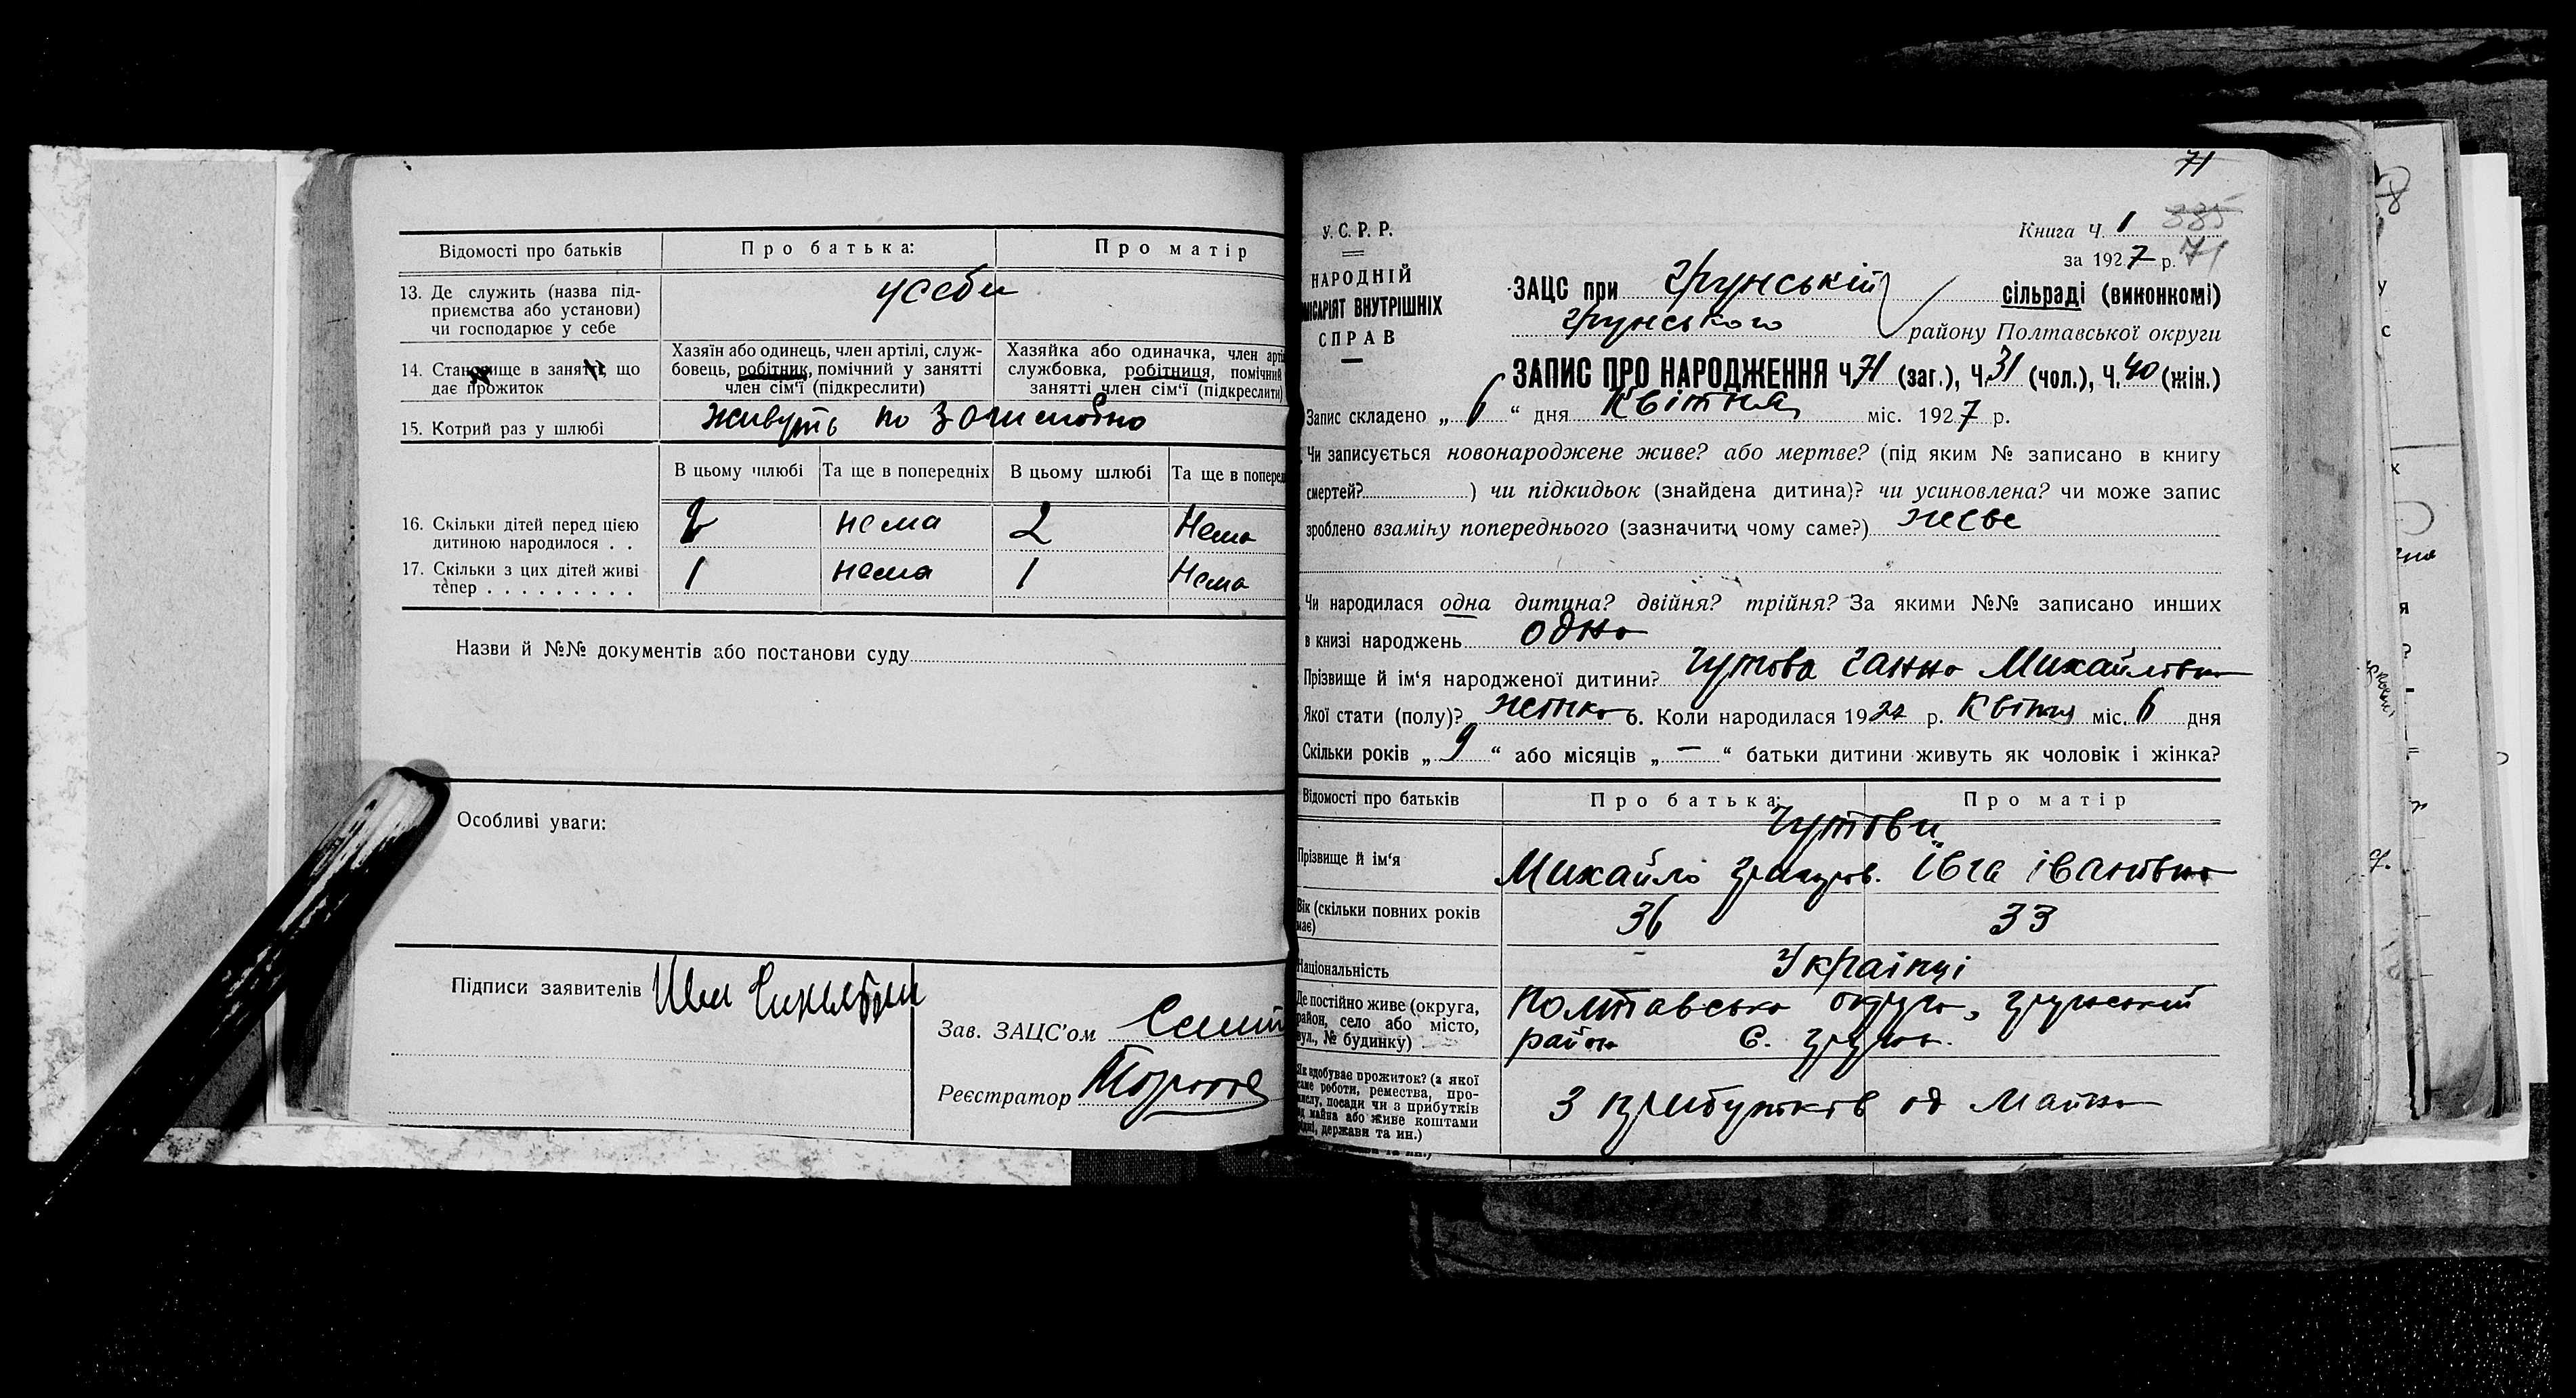 Відомості про батьків
Про батька:
Про матір
13. Де служить (назва під-
приємства або установи)
чи господарює у себе
усеби
14. Становище в занятті, що
дає прожиток
Хазяїн або одинець, член артілі, служ-
бовець, робітник, помічний у занятті
член сім'ї (підкреслити)
Хазяйка або одиначка, член арті
службовка, робітниця, помічний
занятті член сім'ї (підкреслити)
15. Котрий раз у шлюбі
живуть по
В цьому шлюбі
Та ще в попередніх
В цьому шлюбі
Та ще в поперед
16. Скільки дітей перед цією
дитиною народилося . .
2 нема 2 Нема
17. Скільки з цих дітей живі
тепер . . . . . . . . .
1 нема 1 Нема
Назви й №№ документів або постанови суду
Особливі уваги:
Підписи заявителів
Зав. ЗАЦС'ом
Реєстратор
71
У.С.Р.Р.
НАРОДНІЙ
МІСАРІЯТ ВНУТРІШНІХ
СПРАВ
Книга Ч. 1 335
за 1927 р. 71
ЗАЦС при Грунській сільраді (виконкомі)
Грунського району Полтавської округи
ЗАПИС ПРО НАРОДЖЕННЯ Ч. 71 (заг.), Ч. 31 (чол.), Ч. 40 (жін.)
Запис складено „ 6 “ дня Квітня міс. 1927 р.
Чи записується новонароджене живе? або мертве? (під яким № записано в книгу
смертей? ) чи підкидьок (знайдена дитина)? чи усиновлена? чи може запис
зроблено взаміну попереднього (зазначити чому саме?) живе
Чи народилася одна дитина? двійня? трійня? За якими №№ записано инших
в книзі народжень одна
Прізвище й ім'я народженої дитини? Гутова Ганна Михайлівна
Якої стати (полу)? жіноч 6. Коли народилася 1927 р. Квітня міс. 6 дня
Скільки років „ 9 “ або місяців „ — “ батьки дитини живуть як чоловік і жінка?
Відомості про батьків
Про батька:
Про матір
Гутови
Прізвище й ім'я
Михайло Григоров. Івга Івановна
Вік (скільки повних років
має)
36
33
Національність
Українці
Де постійно живе (округа,
район, село або місто,
вул., № будинку)
Полтавська округа, Грунський
район С. Грунь.
Як здобуває прожиток? (з якої
саме роботи, ремества, про-
мислу, посади чи з прибутків
од майна або живе коштами
рідні, держави та ин.)
З прибутків од майна